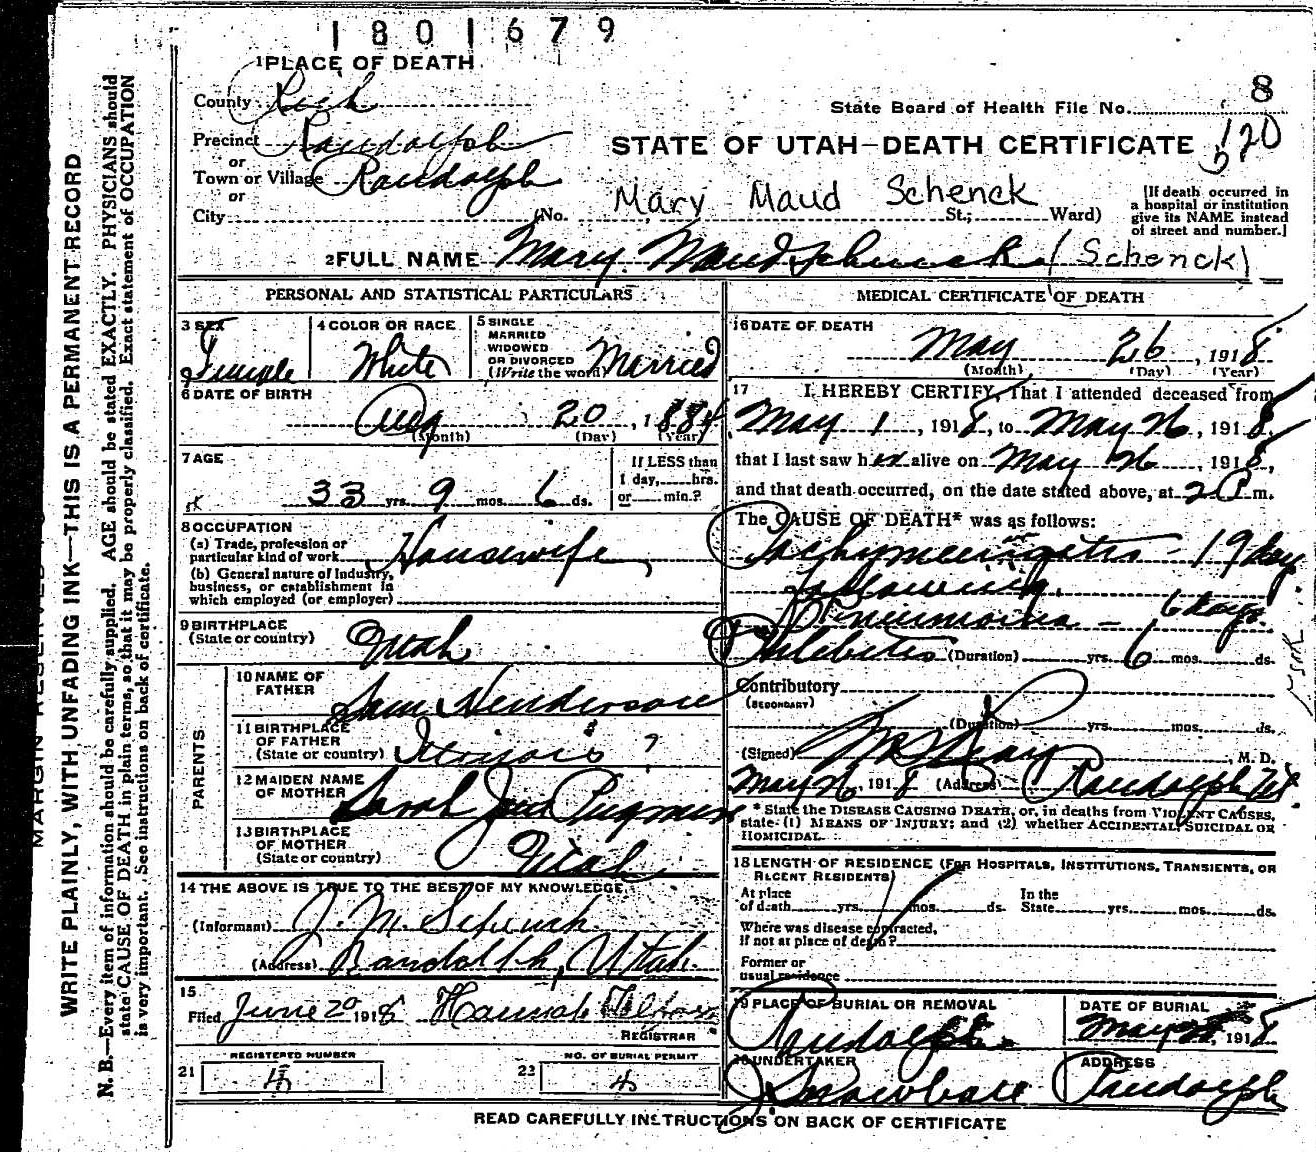 1801679
1 PLACE OF DEATH
County Rich
State Board of Health File No. 8
Precinct Randolph
STATE OF UTAH—DEATH CERTIFICATE 120
or
Town or Village Randolph
or
City (No. St.; Ward)
Mary Maud Schenck
[If death occurred in
a hospital or institution
give its NAME instead
of street and number.]
2 FULL NAME Mary Maud Schenck (Schenck)
PERSONAL AND STATISTICAL PARTICULARS
3 SEX
Female
4 COLOR OR RACE
White
5 SINGLE
MARRIED
WIDOWED
OR DIVORCED
(Write the word) Married
6 DATE OF BIRTH
Aug 20, 1884
(Month) (Day) (Year)
7 AGE
33 yrs. 9 mos. 6 ds.
If LESS than
1 day, hrs.
or min.?
8 OCCUPATION
(a) Trade, profession or
particular kind of work Housewife
(b) General nature of Industry,
business, or establishment in
which employed (or employer)
9 BIRTHPLACE
(State or country) Utah
PARENTS
10 NAME OF
FATHER Sam Henderson
11 BIRTHPLACE
OF FATHER
(State or country) Illinois ?
12 MAIDEN NAME
OF MOTHER Sarah Jane
13 BIRTHPLACE
OF MOTHER
(State or country) Utah
14 THE ABOVE IS TRUE TO THE BEST OF MY KNOWLEDGE
(Informant) J. M. Schenck
(Address) Randolph, Utah.
15
Filed June 20 1918 Hannah
REGISTRAR
REGISTERED NUMBER
21 4
NO. OF BURIAL PERMIT
22 4
MEDICAL CERTIFICATE OF DEATH
16 DATE OF DEATH
May 26, 1918
(Month) (Day) (Year)
17 I HEREBY CERTIFY, That I attended deceased from
May 1, 1918, to May 26, 1918,
that I last saw her alive on May 26, 1918,
and that death occurred, on the date stated above, at 2 P m.
The CAUSE OF DEATH* was as follows:
Pachymeningitis - 19 days
following
Pneumonia - 6 days.
Phlebitis (Duration) yrs. 6 mos. ds.
Contributory
(SECONDARY)
(Duration) yrs. mos. ds.
(Signed) Reay, M. D.
May 26, 1918 (Address) Randolph Ut.
* State the DISEASE CAUSING DEATH, or, in deaths from VIOLENT CAUSES,
state (1) MEANS OF INJURY; and (2) whether ACCIDENTAL, SUICIDAL OR
HOMICIDAL.
18 LENGTH OF RESIDENCE (FOR HOSPITALS, INSTITUTIONS, TRANSIENTS, OR
RECENT RESIDENTS)
At place
of death yrs. mos. ds.
In the
State yrs. mos. ds.
Where was disease contracted,
If not at place of death?
Former or
usual residence
19 PLACE OF BURIAL OR REMOVAL
Randolph
DATE OF BURIAL
May, 1918
20 UNDERTAKER
ADDRESS
Randolph
READ CAREFULLY INSTRUCTIONS ON BACK OF CERTIFICATE
MARGIN RESERVED
WRITE PLAINLY, WITH UNFADING INK—THIS IS A PERMANENT RECORD
N. B.—Every item of information should be carefully supplied. AGE should be stated EXACTLY. PHYSICIANS should
state CAUSE OF DEATH in plain terms, so that it may be properly classified. Exact statement of OCCUPATION
is very important. See instructions on back of certificate.